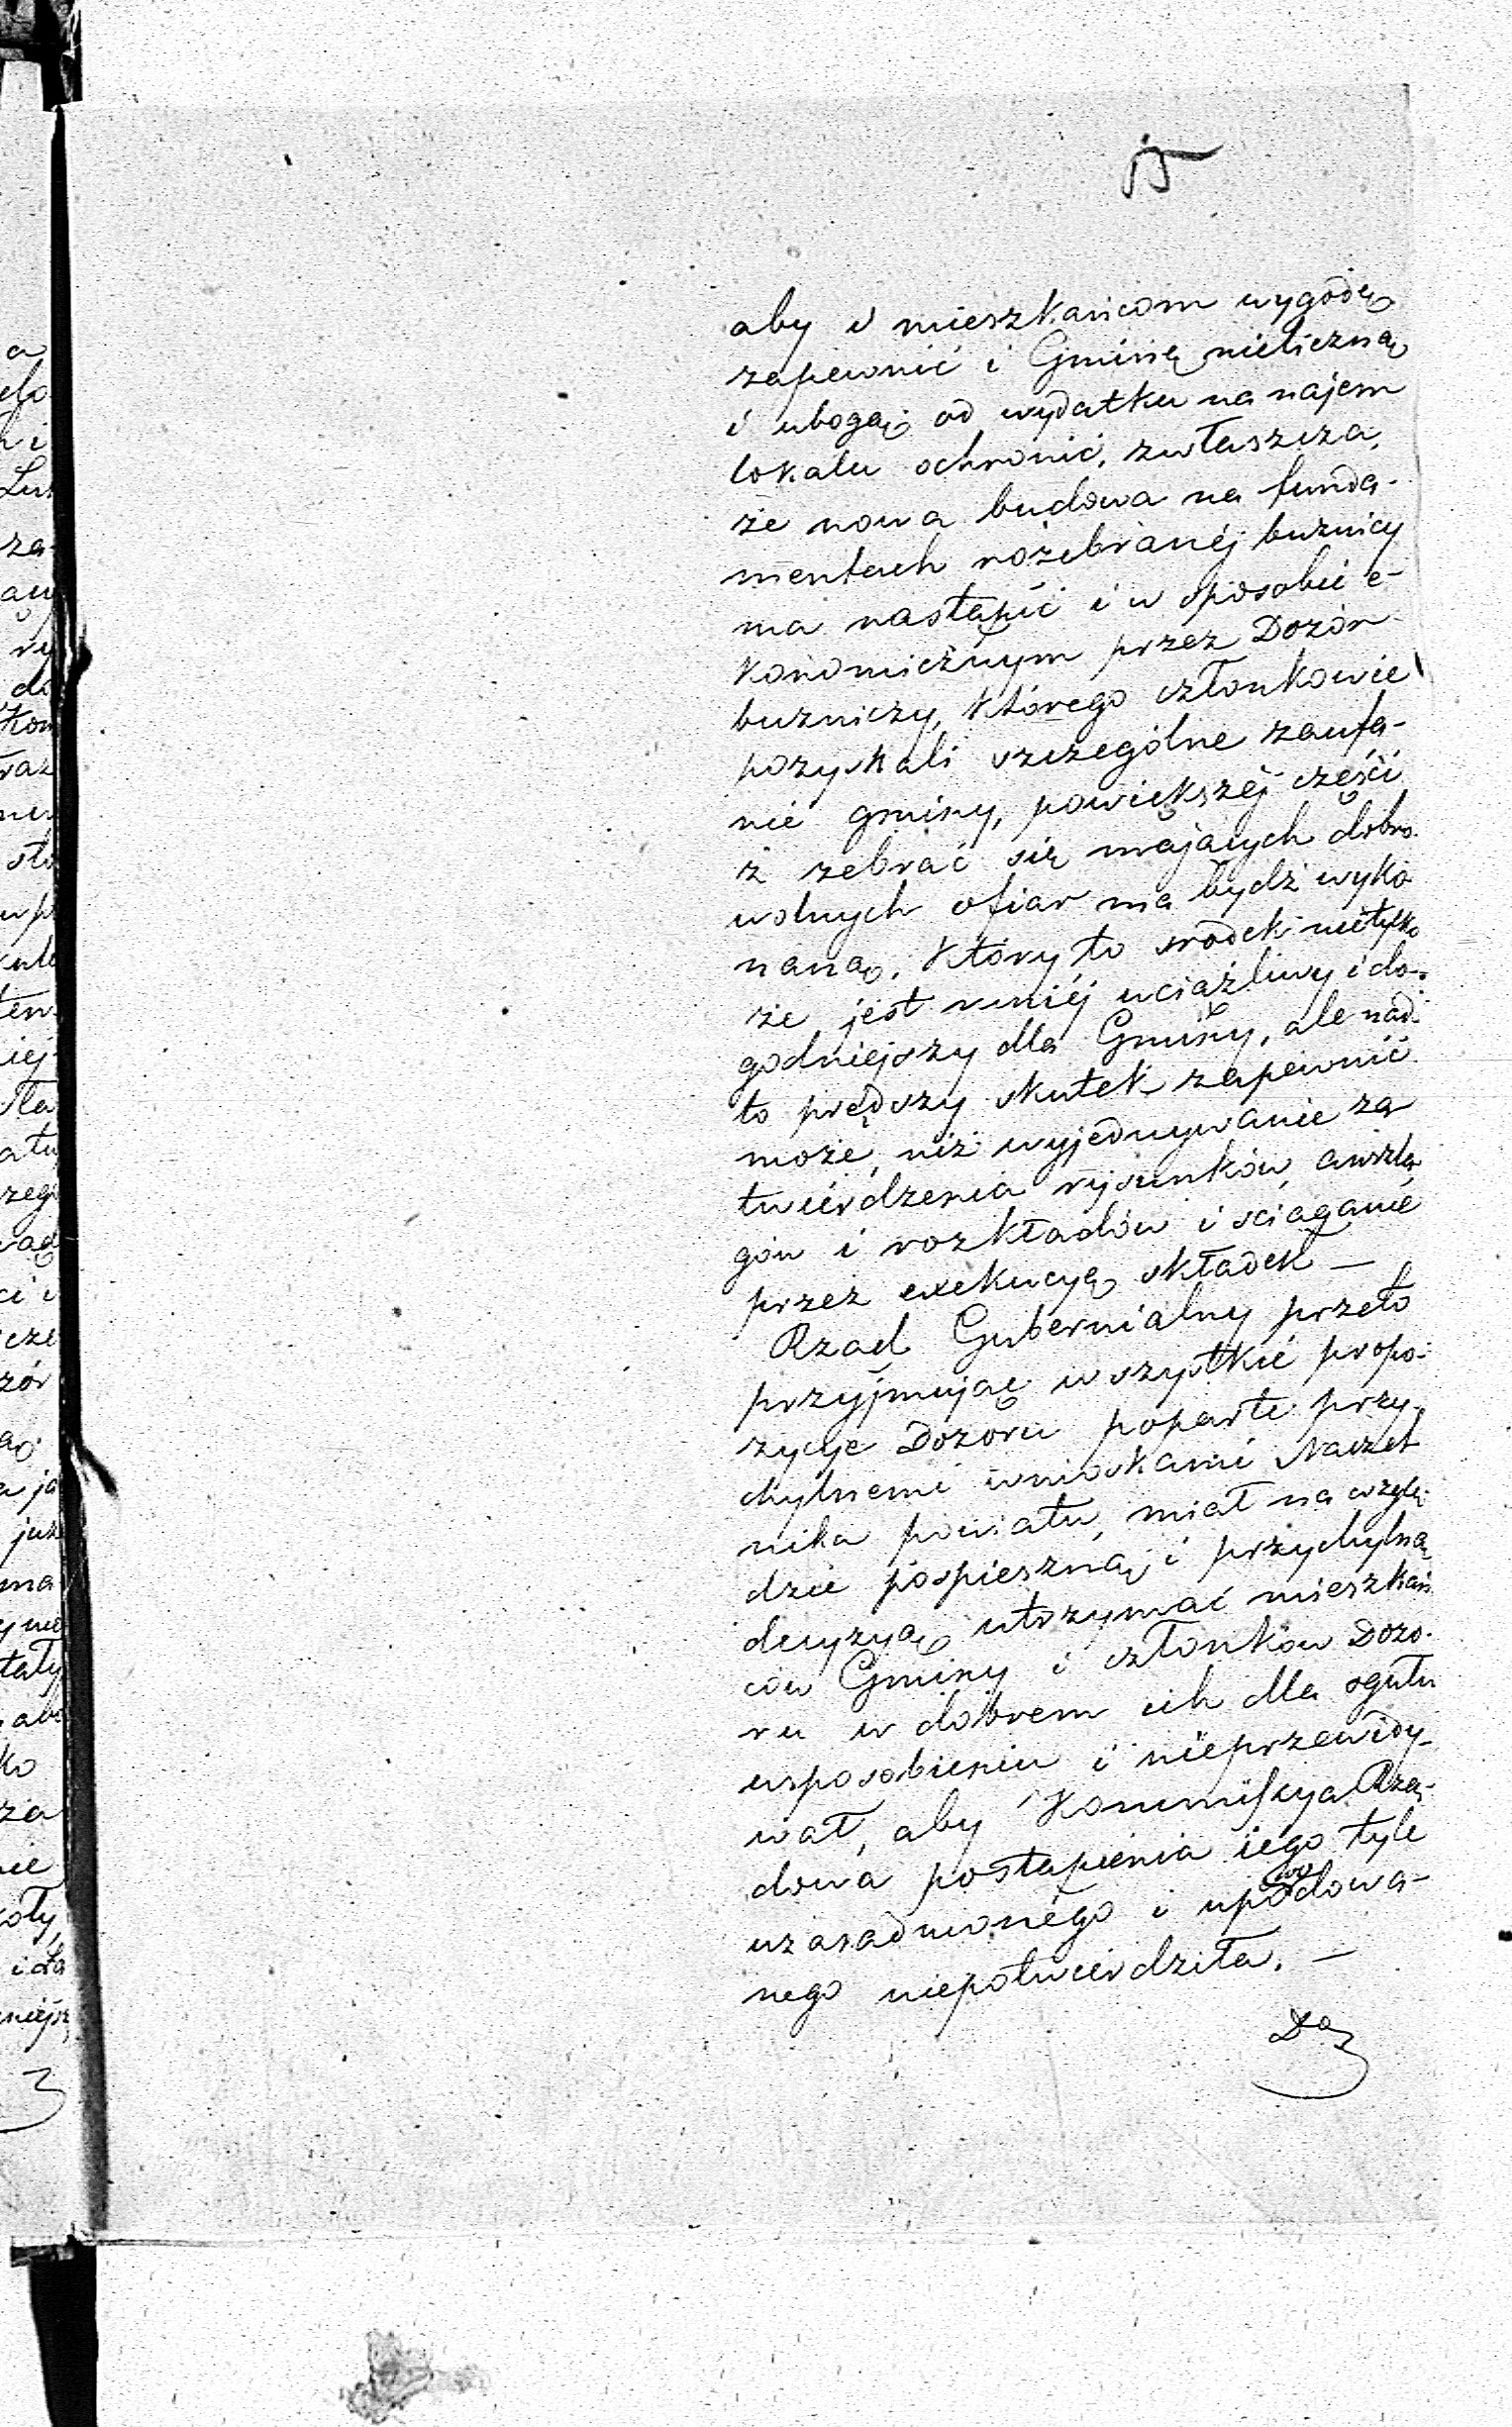 15
aby i mieszkańcom wygodę
zapewnić i Gminę nieliczną
i ubogą od wydatku na najem
lokalu ochronić, zwłaszcza,
że nowa budowa na funda-
mentach rozebranéj bużnicy
ma nastąpić i w sposobie e-
konomicznym przez Dozór
bużniczy, którego członkowie
pozyskali szczególne zaufa-
nie gminy, powiększéj części
z zebrać się mających dobro
wolnych ofiar ma bydź wyko
naną, który to srodek nietylko
że jest mniéj uciążliwy i do-
godniejszy dla Gminy, ale nad
to prędszy skutek zapewnić
może, niż wyjednywanie za
twierdzenia rysunków, anszla
gów i rozkładów i sciąganie
przez exekucyą składek —
Rząd Gubernialny przeto
przyjmując wszystkie propo-
zycye Dozoru poparte przy-
chylnemi wnioskami Naczel
nika powiatu, miał na wzglę-
dzie pospieszną i przychylną
decyzyą utrzymać mieszkań
ców Gminy i członków Dozo-
ru w dobrem ich dla ogułu
usposobieniu i nieprzewidy-
wał, aby Kommissya Rzą-
dowa postąpienia iego tyle
uzasadnionego i upowodowa-
nego niepotwierdziła. —
Do